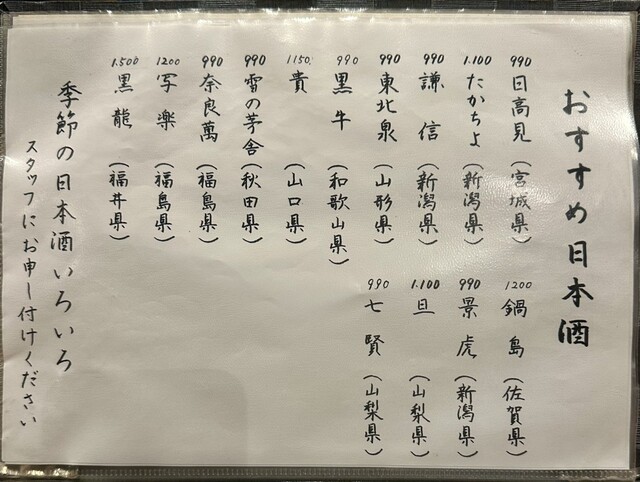 おすすめ日本酒
990 日高見(宮城県)
1.100 たかちよ(新潟県)
990 謙信(新潟県)
990 東北泉(山形県)
990 黒牛(和歌山県)
1150 貴(山口県)
990 雪の茅舎(秋田県)
990 奈良萬(福島県)
1200 写楽(福島県)
1.500 黒龍(福井県)
1200 鍋島(佐賀県)
990 景虎(新潟県)
1.100 旦(山梨県)
990 七賢(山梨県)
季節の日本酒いろいろ
スタッフにお申し付けください